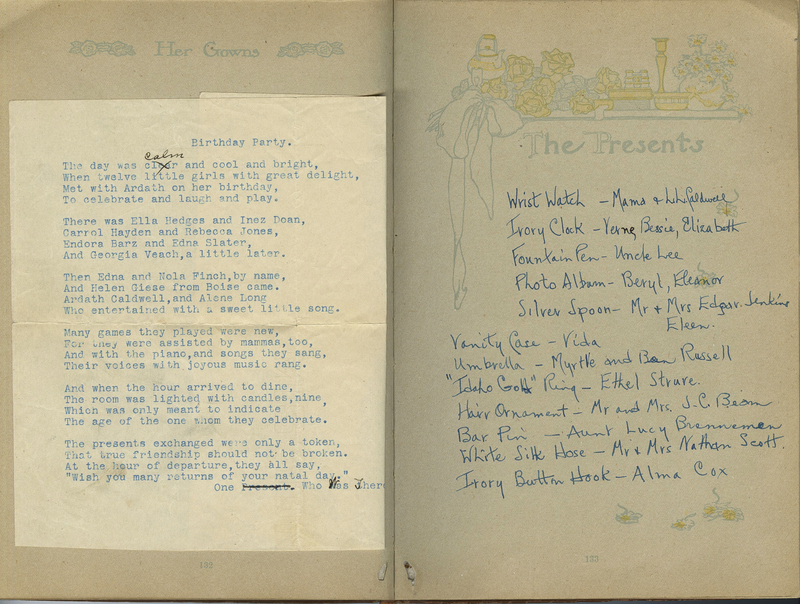 Her Gowns
Birthday Party.
calm
The day was clear and cool and bright,
When twelve little girls with great delight,
Met with Ardath on her birthday,
To celebrate and laugh and play.
There was Ella Hedges and Inez Doan,
Carrol Hayden and Rebecca Jones,
Endora Barz and Edna Slater,
And Georgia Veach,a little later.
Then Edna and Nola Finch,by name,
And Helen Giese from Boise came.
Ardath Caldwell,and Alone Long
Who entertained with a sweet little song.
Many games they played were new,
For they were assisted by mammas,too,
And with the piano,and songs they sang,
Their voices with joyous music rang.
And when the hour arrived to dine,
The room was lighted with candles,nine,
Which was only meant to indicate
The age of the one whom they celebrate.
The presents exchanged were only a token,
That true friendship should not be broken.
At the hour of departure,they all say,
"Wish you many returns of your natal day."
One Present. Who Was There
132
The Presents
Wrist Watch - Mama & L.L. Caldwell
Ivory Clock - Verne, Bessie, Elizabeth
Fountain Pen - Uncle Lee
Photo Album - Beryl, Eleanor
Silver Spoon - Mr & Mrs Edgar Jenkins
Eleen.
Vanity Case - Vida
Umbrella - Myrtle and Ben Russell
"Idaho Gold" Ring - Ethel Strave.
Hair Ornament - Mr and Mrs. J.C. Beam
Bar Pin - Aunt Lucy Brenneman
White Silk Hose - Mr & Mrs Nathan Scott.
Ivory Button Hook - Alma Cox
133